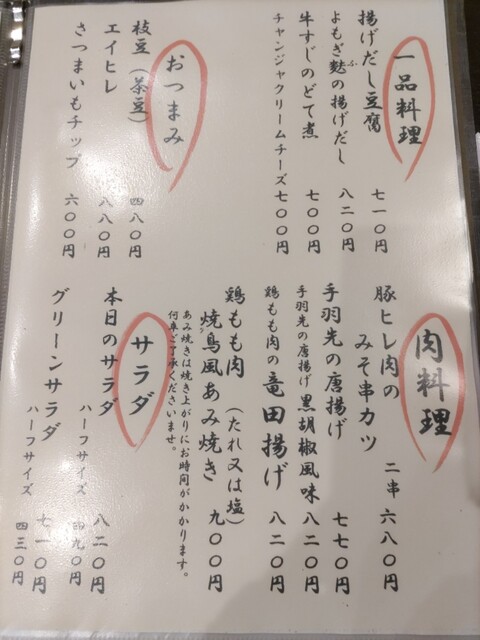 一品料理
揚げだし豆腐 七一〇円
よもぎ麩の揚げだし 八二〇円
ふ
牛すじのどて煮 七〇〇円
チャンジャクリームチーズ 七〇〇円
おつまみ
枝豆(茶豆) 四八〇円
エイヒレ 八八〇円
さつまいもチップ 六〇〇円
肉料理
豚ヒレ肉の
みそ串カツ 二串 六八〇円
手羽先の唐揚げ 七七〇円
手羽先の唐揚げ 黒胡椒風味 八二〇円
鶏もも肉の 竜田揚げ 八二〇円
鶏もも肉 (たれ又は塩)
焼鳥風あみ焼き 九〇〇円
あみ焼きは焼き上がりにお時間がかかります。
何卒ご了承くださいませ。
サラダ
本日のサラダ 八二〇円
ハーフサイズ 四九〇円
グリーンサラダ 七一〇円
ハーフサイズ 四三〇円